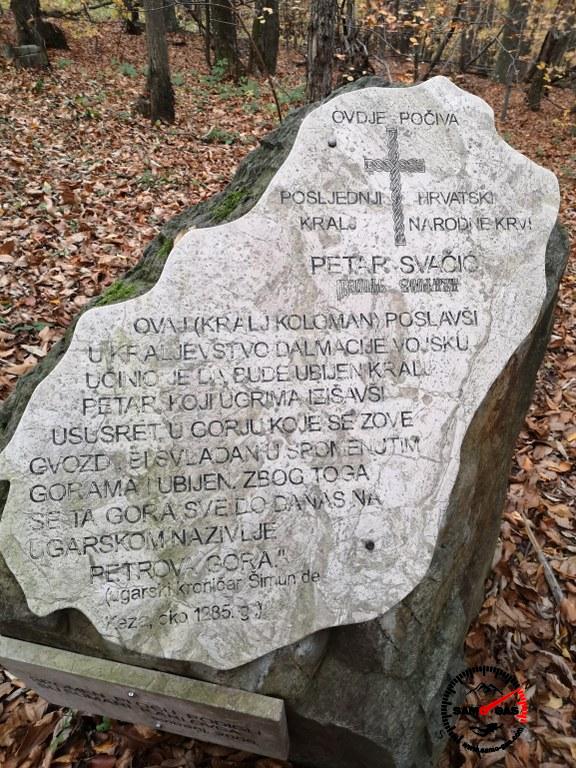 OVDJE POČIVA
POSLJEDNJI HRVATSKI
KRALJ NARODNE KRVI
PETAR SVAČIĆ
OVAJ (KRALJ KOLOMAN) POSLAVŠI
U KRALJEVSTVO DALMACIJE VOJSKU
UČINIO JE DA BUDE UBIJEN KRALJ
PETAR, KOJI UGRIMA IZIŠAVŠI
USUSRET, U GORJU KOJE SE ZOVE
GVOZD, BI SVLADAN U SPOMENUTIM
GORAMA I UBIJEN. ZBOG TOGA
SE TA GORA SVE DO DANAS NA
UGARSKOM NAZIVLJE
PETROVA GORA."
(ugarski kroničar Šimun de
Keza, oko 1285. g.)